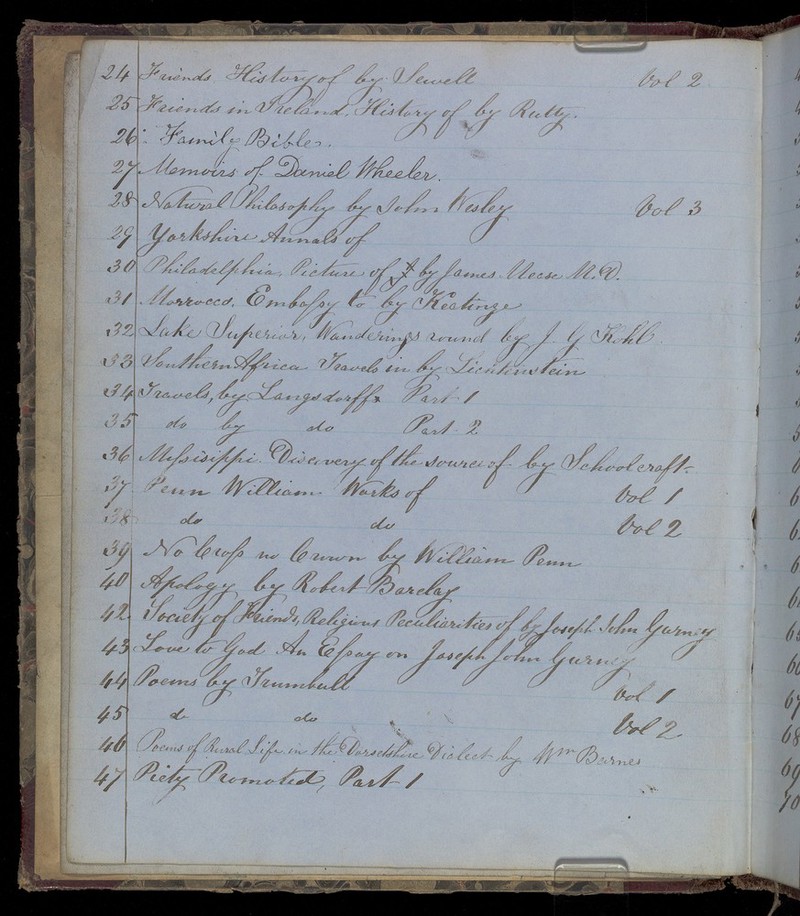 24 Friends History of by Sewell Vol 2
25 Friends in Ireland, History of by Rutty.
26 Family Bible.
27 Memoirs of Daniel Wheeler.
28 Natural Philosophy by John Wesley Vol 3
29 Yorkshire Annals of
30 Philadelphia, Picture of by James Mease M.D.
31 Morrocco. Embassy to by Keatinge
32 Lake Superior, Wanderings round by J. G Kohl
33 Southern Africa Travels in by Lichtenstein
34 Travels, by Langsdorff Part 1
35 do by do Part 2
36 Mississippi. Discovery of the source of by Schoolcraft
37 Penn William Works of Vol 1
38 do do Vol 2
39 No Cross no Crown by William Penn
40 Apology by Robert Barclay
42 Society of Friends, Religious Peculiarities of by Joseph John Gurney
43 Love to God An Essay on Joseph John Gurney
44 Poems by Trumbull Vol 1
45 do do Vol 2
46 Poems of Rural Life in the Dorsetshire Dialect by Wm Barnes
47 Piety Promoted, Part 1